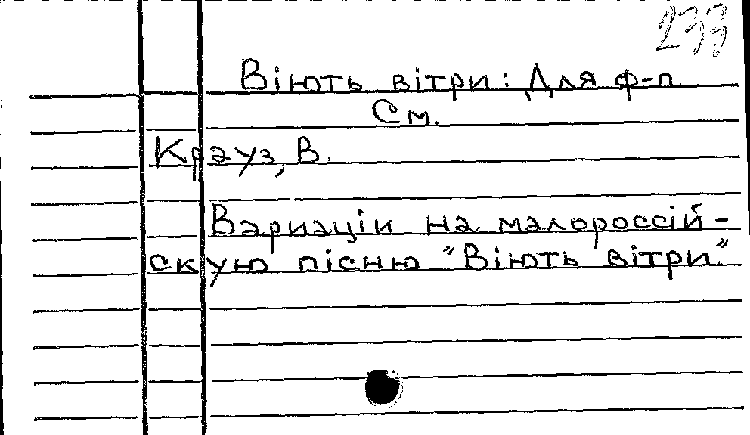 233
Віють вітри: Для ф-п
См.
Крауз, В.
Вариаціи на малороссій-
скую пісню "Віють вітри."